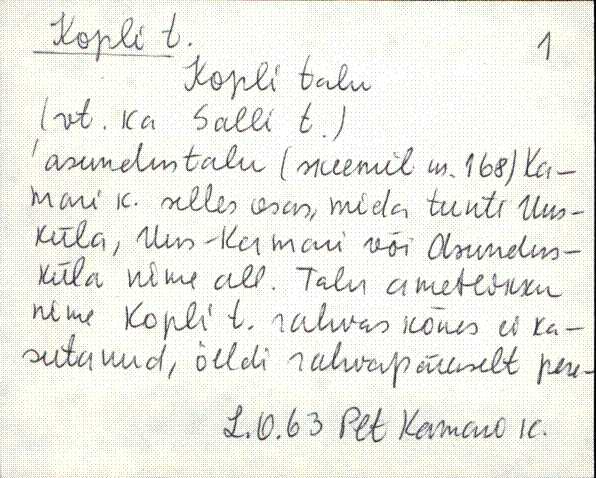 Kopli t.
1
Kopli talu
(vt. ka Salli t.)
'asundustalu (skeemil nr. 168) Ka-
mari k. selles osas, mida tunti Uus-
küla, Uus-Kamari või Asundus-
küla nime all. Talu ametlikku
nime Kopli t. rahvas kõnes ei ka-
sutanud, öeldi rahvapäraselt pere-
L.O.63 Plt Kamari k.